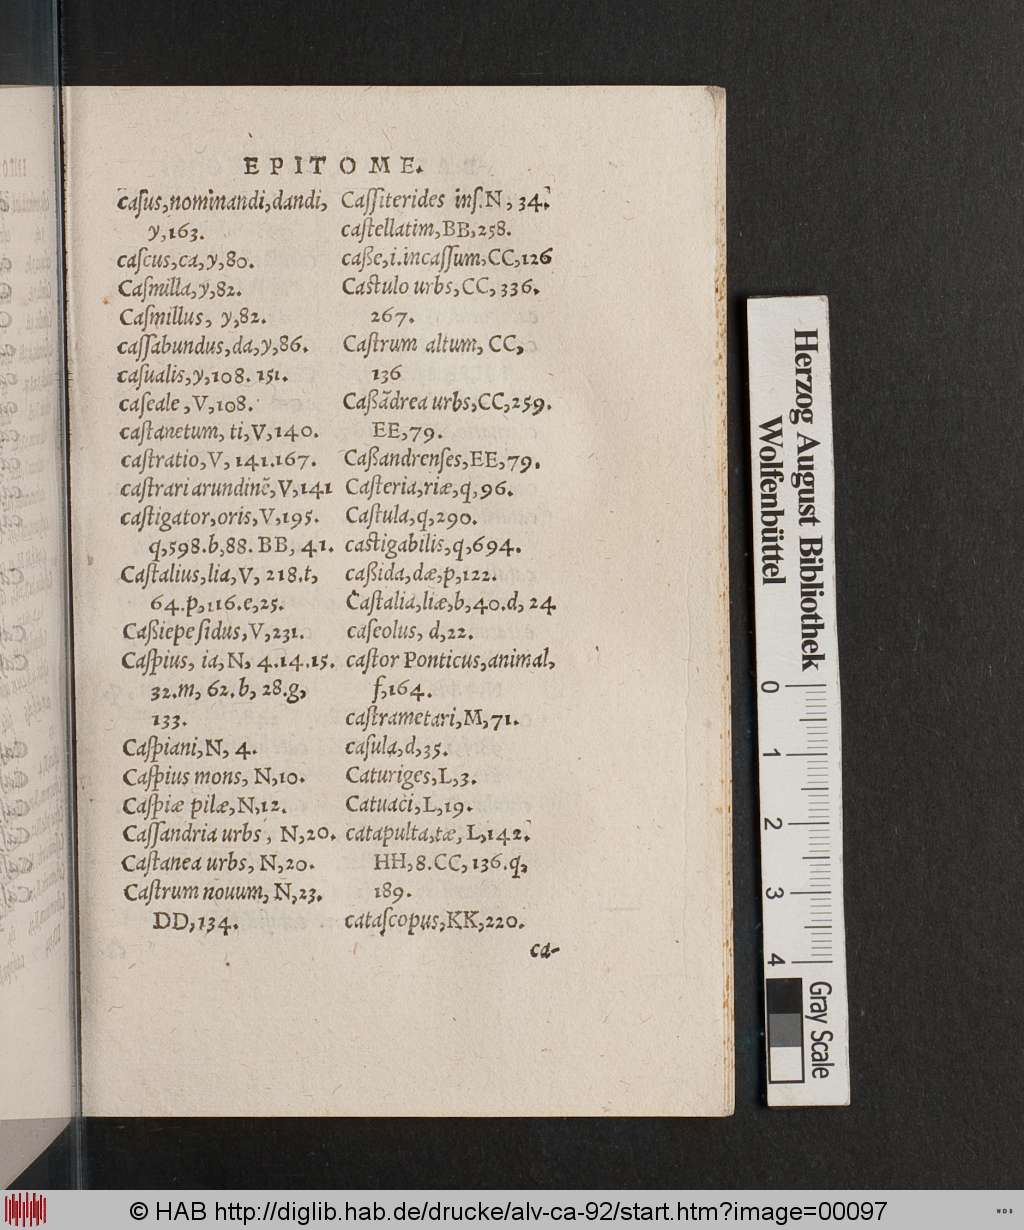 EPITOME.
casus,nominandi,dandi,
y,163.
cascus,ca,y,80.
Casmilla,y,82.
Casmillus, y,82.
cassabundus,da,y,86.
casualis,y,108. 151.
caseale,V,108.
castanetum, ti,V,140.
castratio,V, 141.167.
castrari arundinē,V,141
castigator,oris,V,195.
q,598.b,88. BB, 41.
Castalius,lia,V, 218.t,
64.p,116.e,25.
Caßiepe sidus,V,231.
Caspius, ia,N, 4.14.15.
32.m, 62.b, 28.g,
133.
Caspiani,N, 4.
Caspius mons, N,10.
Caspiæ pilæ,N,12.
Cassandria urbs, N,20.
Castanea urbs, N,20.
Castrum nouum, N,23.
DD,134.
Cassiterides ins.N, 34.
castellatim,BB,258.
caße,i.incassum,CC,126
Castulo urbs,CC, 336.
267.
Castrum altum, CC,
136
Caßãdrea urbs,CC,259.
EE,79.
Caßandrenses,EE,79.
Casteria,riæ,q,96.
Castula,q,290.
castigabilis,q,694.
caßida,dæ,p,122.
Castalia,liæ,b,40.d, 24
caseolus, d,22.
castor Ponticus,animal,
f,164.
castrametari,M,71.
casula,d,35.
Caturiges,L,3.
Catuaci,L,19.
catapulta,tæ, L,142.
HH,8.CC, 136.q,
189.
catascopus,KK,220.
ca-
Herzog August Bibliothek
Wolfenbüttel
0 1 2 3 4
Gray Scale
© HAB http://diglib.hab.de/drucke/alv-ca-92/start.htm?image=00097